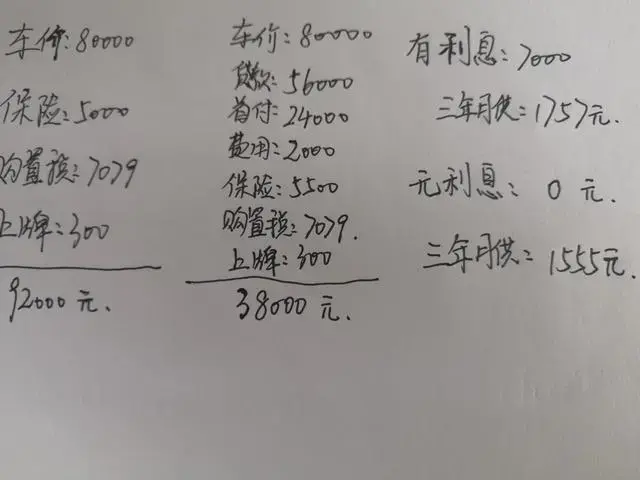 车价:80000
保险:5000
购置税:7079
上牌:300
92000元.
车价:80000
贷款:56000
首付:24000
费用:2000
保险:5500
购置税:7079.
上牌:300
38000元.
有利息:7000
三年月供:1757元.
无利息:0元.
三年月供:1555元.